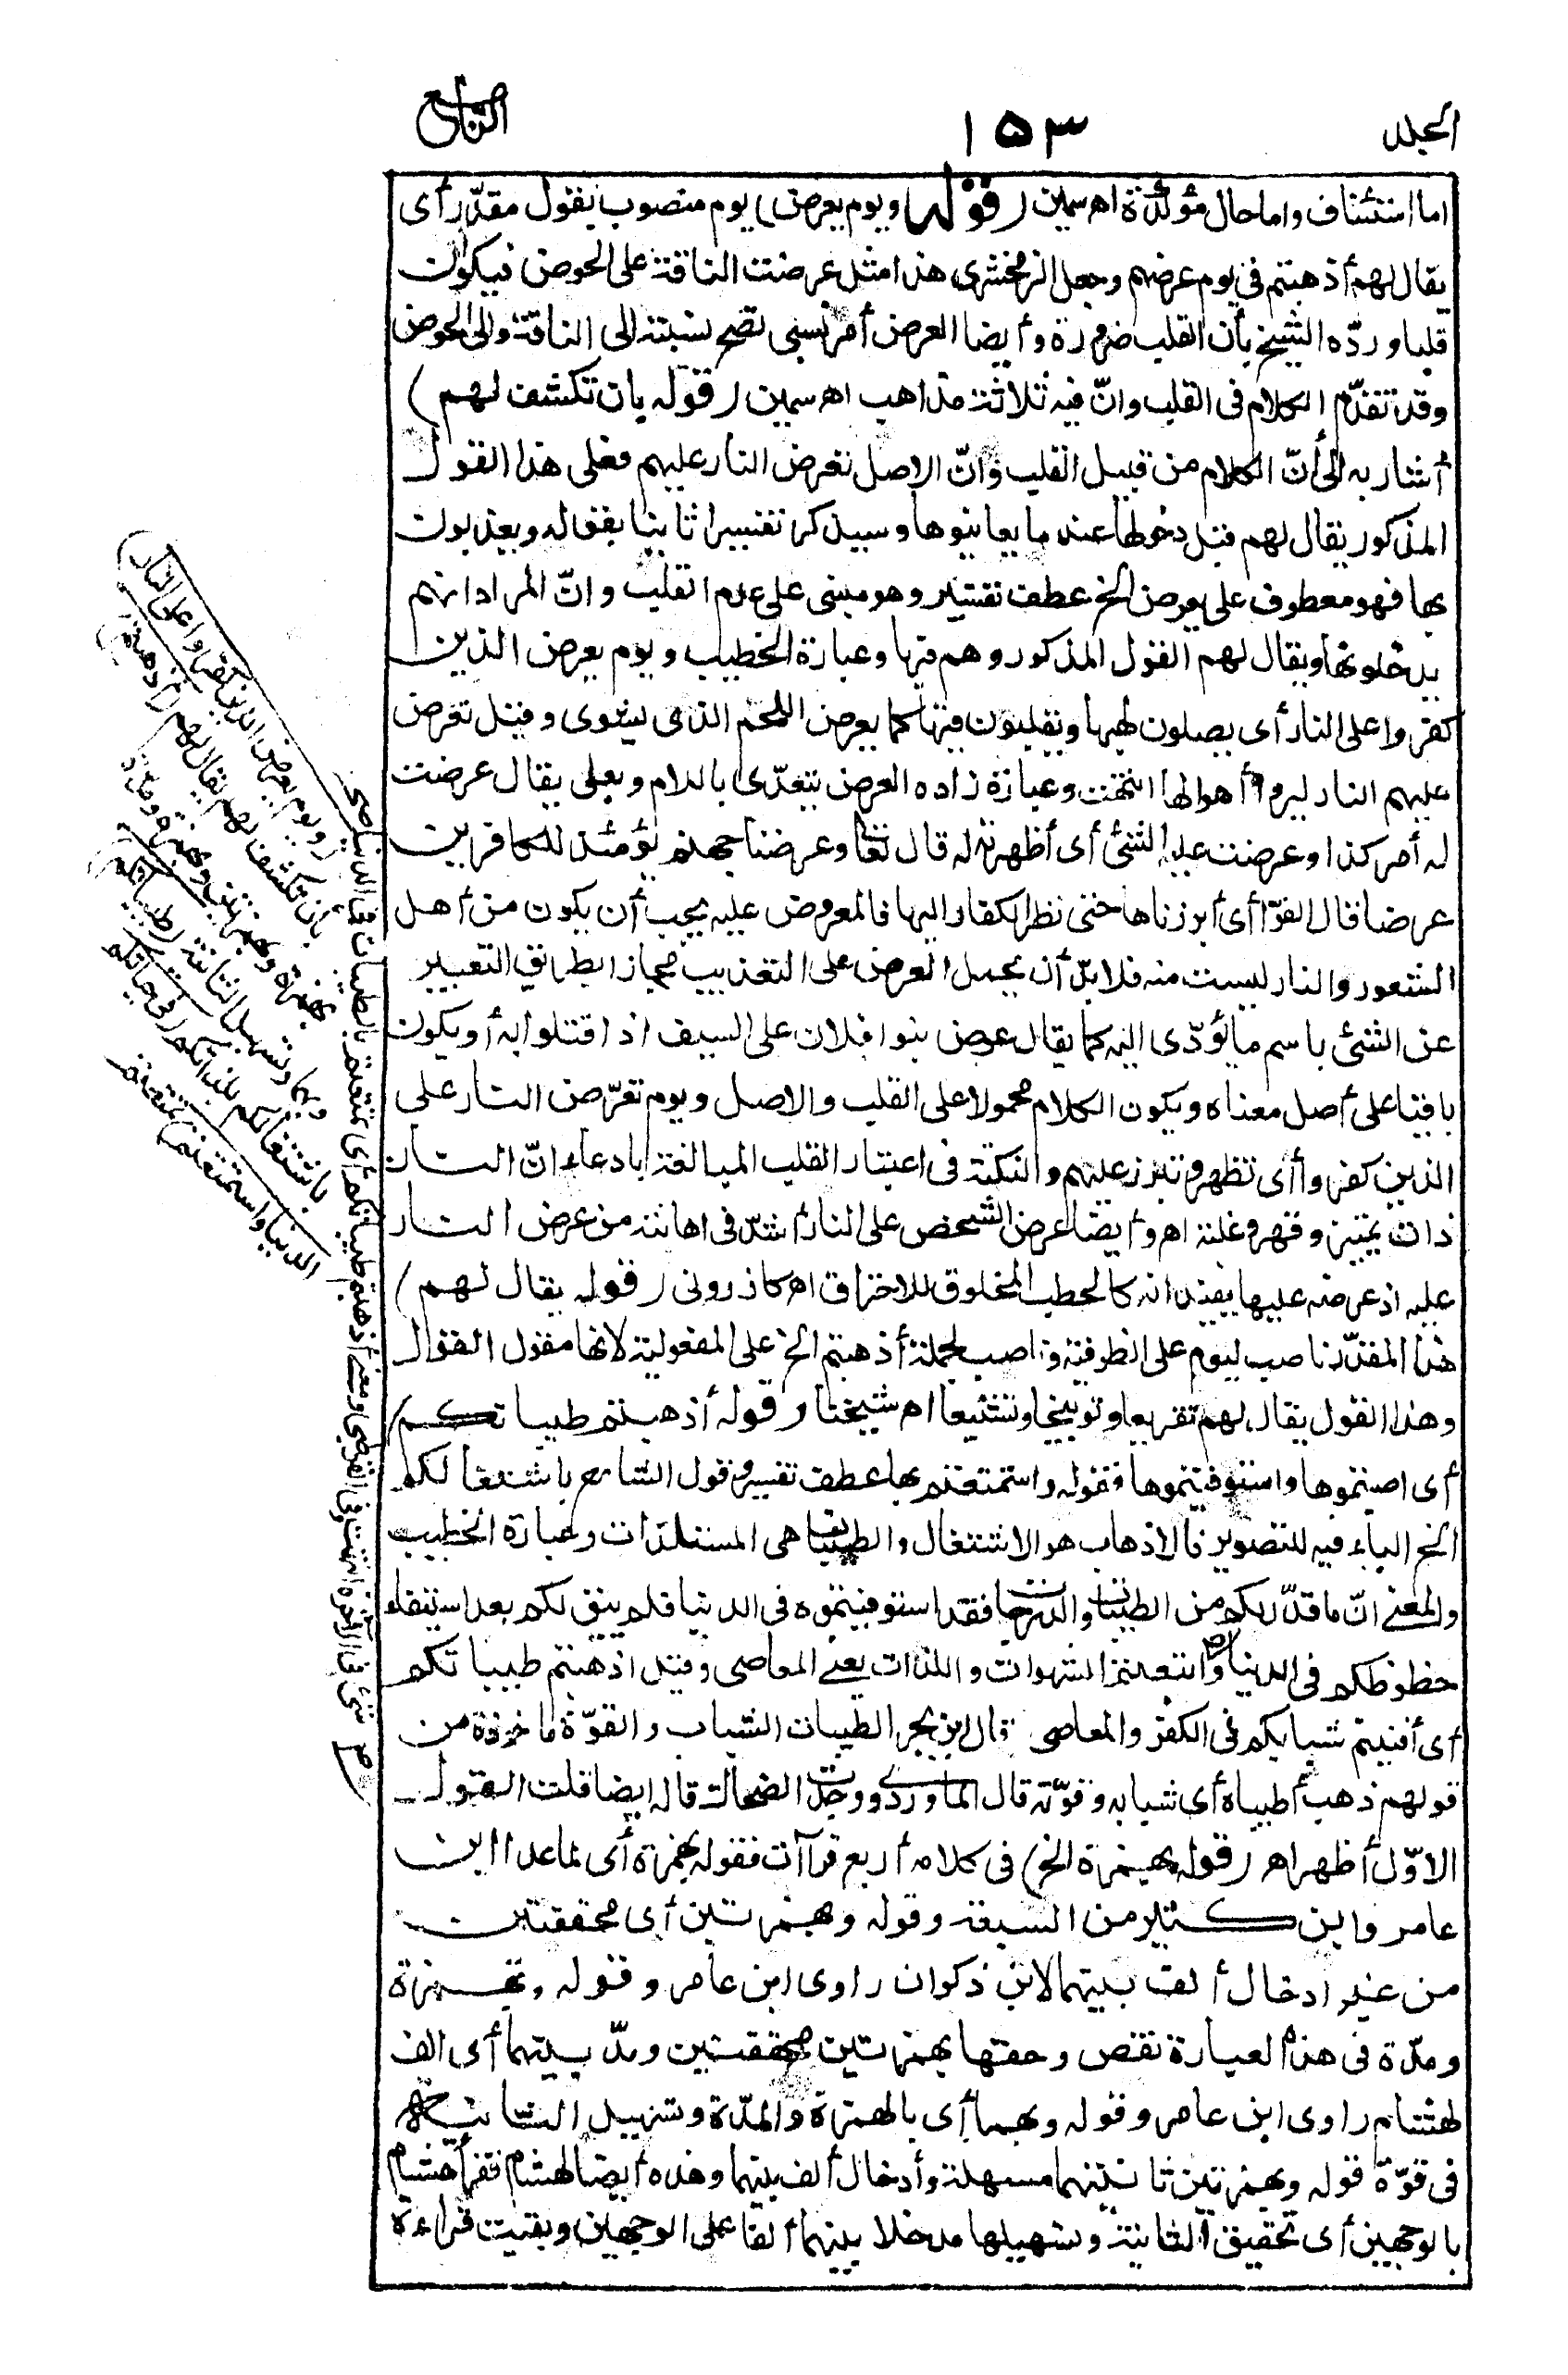 المجلد
١٥٣
التاسع
اما استئناف واما حال مؤكدة اه سمين (قوله ويوم يعرض) يوم منصوب بقول مقدّر أى
يقال لهم أذهبتم فى يوم عرضهم وجعل الزمخشرى هذا مثل عرضت الناقة على الحوض فيكون
قلبا وردّه الشيخ بأن القلب ضرورة وأيضا العرض أمر نسبى تصح نسبته الى الناقة والى الحوض
وقد تقدّم الكلام فى القلب وانّ فيه ثلاثة مذاهب اه سمين (قوله بان تكشف لهم)
أشار به الى أنّ الكلام من قبيل القلب وانّ الاصل تعرض النار عليهم فعلى هذا القول
المذكور يقال لهم قبل دخولها عند ما يعاينوها وسيذكر تفسيرا ثانيا بقوله ويعذبون
بها فهو معطوف على يعرض الخ عطف تفسير وهو مبنى على عدم القلب وانّ المراد انهم
يدخلونها ويقال لهم القول المذكور وهم فيها وعبارة الخطيب ويوم يعرض الذين
كفروا على النار أى يصلون لهبها ويقلبون فيها كما يعرض اللحم الذى يشوى وقيل تعرض
عليهم النار ليروا أهوالها انتهت وعبارة زاده العرض يتعدّى باللام وبعلى يقال عرضت
له أمر كذا وعرضت عليه الشئ أى أظهرته له قال تعالى وعرضنا جهنم يومئذ للكافرين
عرضا قال الفرّا أى أبرزناها حتى نظر الكفار اليها فالمعروض عليه يجب أن يكون من أهل
الشعور والنار ليست منه فلا بدّ أن يحمل العرض على التعذيب مجازا بطريق التعبير
عن الشئ باسم ما يؤدّى اليه كما يقال عرض بنوا فلان على السيف اذا قتلوا به أو يكون
باقيا على أصل معناه ويكون الكلام محمولا على القلب والاصل ويوم تعرض النار على
الذين كفروا أى تظهر وتبرز عليهم والنكتة فى اعتبار القلب المبالغة بادعاء انّ النار
ذات تمييز وقهر وغلبة اه وأيضا عرض الشخص على النار أشدّ فى اهانته من عرض النار
عليه اذ عرضه عليها يفيد انه كالحطب المخلوق للاحتراق اه كازرونى (قوله يقال لهم)
هذا المقدّر ناصب ليوم على الظرفية وناصب لجملة أذهبتم الخ على المفعولية لانها مقول القول
وهذا القول يقال لهم تقريعا وتوبيخا وتشنيعا اه شيخنا (قوله أذهبتم طيباتكم)
أى اصبتموها واستوفيتموها فقوله واستمتعتم بها عطف تفسير وقول الشارح باشتغالكم
الخ الباء فيه للتصوير فالاذهاب هو الاشتغال والطيبات هى المستلذات وعبارة الخطيب
والمعنى انّ ما قدّر لكم من الطيبات والدرجات فقد استوفيتموه فى الدنيا فلم يبق لكم بعد استيفاء
حظوظكم فى الدنيا واتبعتم الشهوات واللذات يعنى المعاصى وقيل أذهبتم طيباتكم
أى أفنيتم شبابكم فى الكفر والمعاصى قال ابن بحر الطيبات الشباب والقوّة ماخوذة من
قولهم ذهب أطيباه أى شبابه وقوّته قال الماوردى ووجدت الضحاك قاله ايضا قلت القول
الاوّل أظهر اه (قوله بهمزة الخ) فى كلامه أربع قرآآت فقوله بهمزة أى لما عدا ابن
عامر وابن كثير من السبعة وقوله وهمزتين أى محققتين
من غير ادخال ألف بينهما لابن ذكوان راوى ابن عامر وقوله وبهمزة
ومدّة فى هذه العبارة نقص وحقها بهمزتين محققتين ومدّ بينهما أى الف
لهشام راوى ابن عامر وقوله وبهما أى بالهمزة والمدّة وتسهيل الثانية
فى قوّة قوله وبهمزتين ثانيتهما مسهلة وأدخال ألف بينهما وهذه أيضا لهشام فقرأ هشام
بالوجهين أى تحقيق الثانية وتسهيلها مدخلا بينهما ألفا على الوجهين وبقيت قراءة
(ويوم يعرض الذين كفروا على النار)
بأن تكشف لهم يقال لهم (أذهبتم)
بهمزة وبهمزتين وبهمزة ومدّة
وبهما وتسهيل الثانية (طيباتكم)
باشتغالكم بلذاتكم (فى حياتكم
الدنيا واستمتعتم) تمتعتم
شئ فى الآخرة انتهت وفى القرطبى ومعنى أذهبتم طيباتكم أى تمتعتم بالطيبات فى الدنيا صح